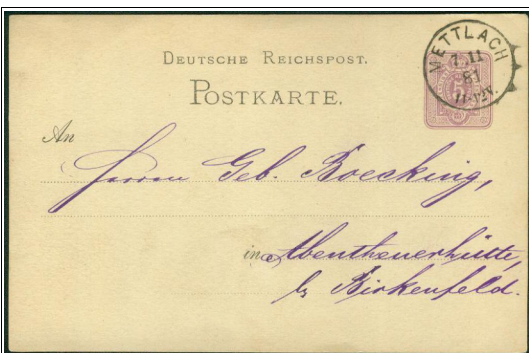 DEUTSCHE REICHSPOST.
POSTKARTE.
METTLACH
7 11
81
11-12V.
5
An
Herren Geb. Boecking,
in Abentheuerhütte,
b/ Birkenfeld.